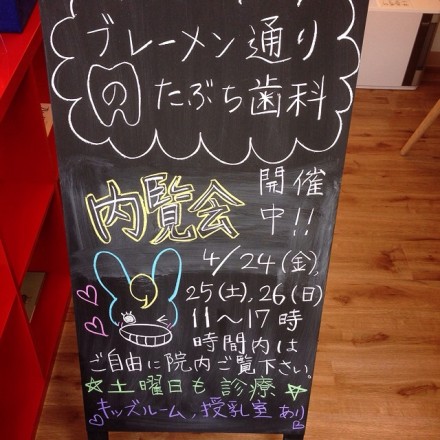 ブレーメン通り
の たぶち歯科
内覧会 開催
中!!
4/24(金),
25(土),26(日)
11～17時
時間内は
ご自由に院内ご覧下さい。
☆土曜日も診療☆
キッズルーム,授乳室あり